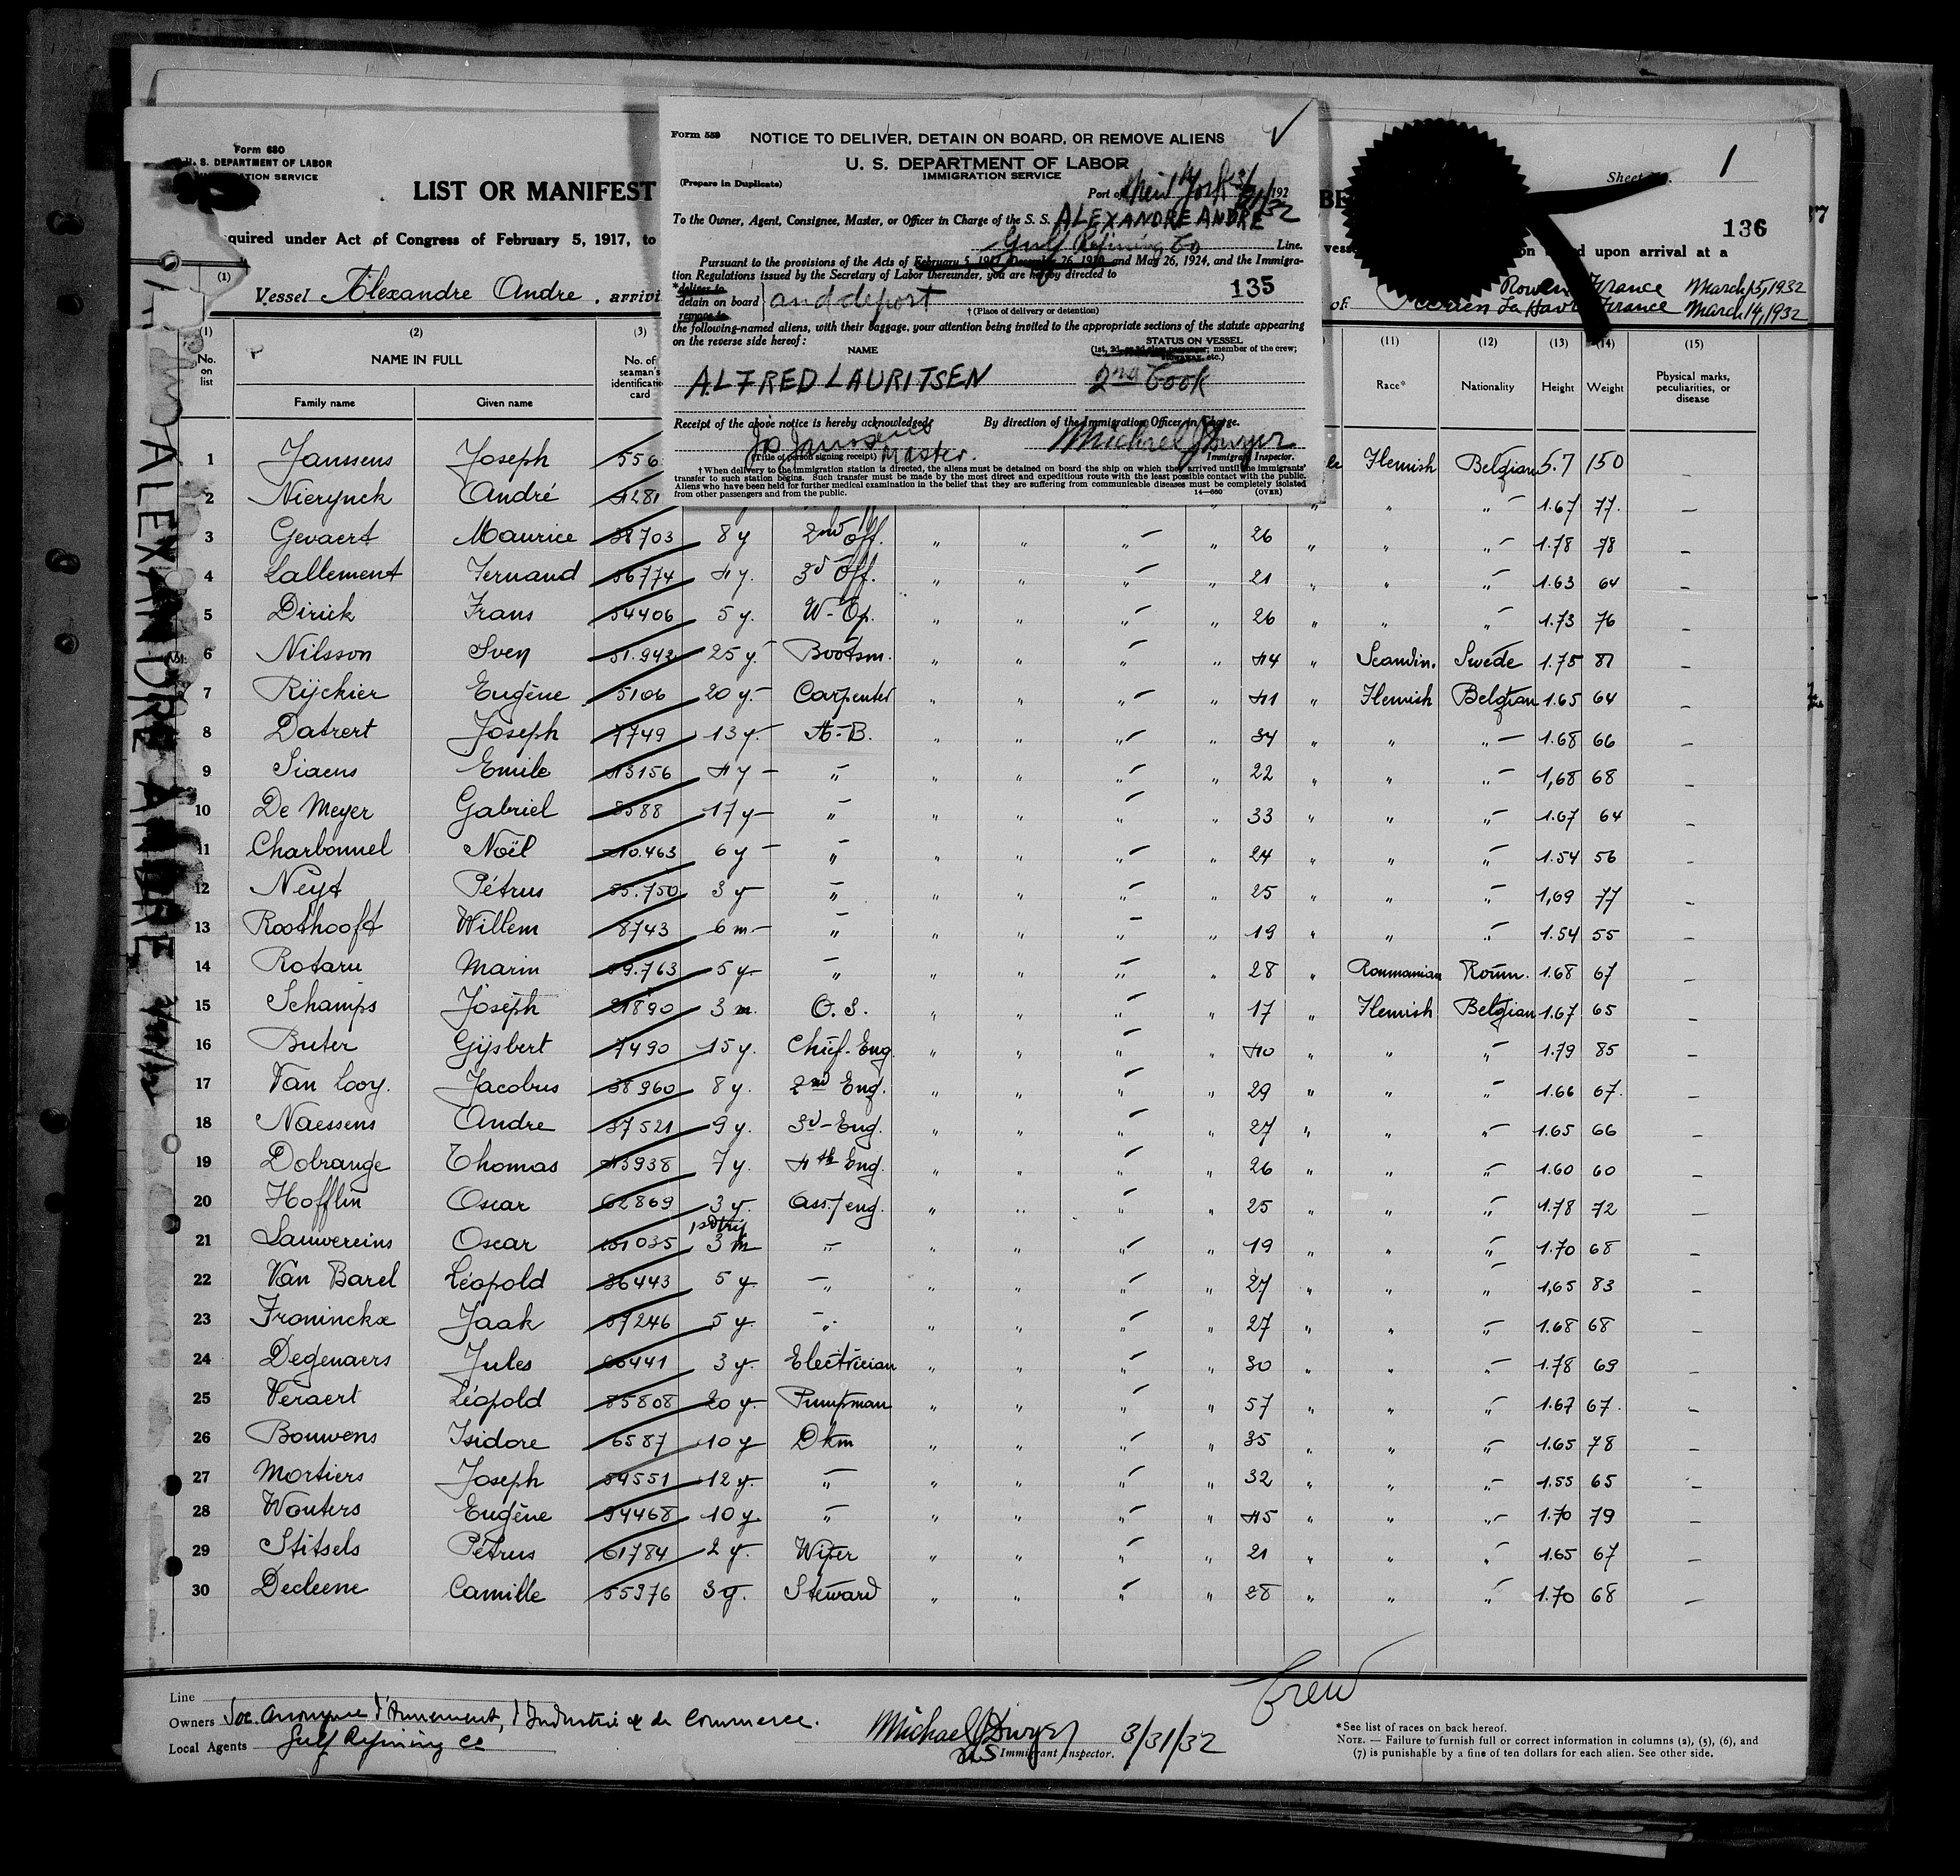 Form 559
NOTICE TO DELIVER, DETAIN ON BOARD, OR REMOVE ALIENS
U. S. DEPARTMENT OF LABOR
IMMIGRATION SERVICE
(Prepare in Duplicate)
Port of New York 3/31/1932
To the Owner, Agent, Consignee, Master, or Officer in Charge of the S. S. ALEXANDRE ANDRE
Gulf Refining Co Line.
Pursuant to the provisions of the Acts of February 5, 1917, December 26, 1920, and May 26, 1924, and the Immigra-
tion Regulations issued by the Secretary of Labor thereunder, you are hereby directed to
*deliver to
detain on board and deport 135
remove to
†(Place of delivery or detention)
the following-named aliens, with their baggage, your attention being invited to the appropriate sections of the statute appearing
on the reverse side hereof:
NAME
STATUS ON VESSEL
(1st, 2d, or 3d class passenger; member of the crew; stowaway, etc.)
ALFRED LAURITSEN 2nd Cook
Receipt of the above notice is hereby acknowledged. By direction of the Immigration Officer in Charge.
Jo Janssens Master. Michael J Dwyer
(Title of person signing receipt) Immigrant Inspector.
†When delivery to the immigration station is directed, the aliens must be detained on board the ship on which they arrived until the immigrants'
transfer to such station begins. Such transfer must be made by the most direct and expeditious route with the least possible contact with the public.
Aliens who have been held for further medical examination in the belief that they are suffering from communicable diseases must be completely isolated
from other passengers and from the public. 14—660 (OVER)
Form 680
U. S. DEPARTMENT OF LABOR
IMMIGRATION SERVICE
LIST OR MANIFEST BE
Sheet No. 1
136 37
quired under Act of Congress of February 5, 1917, to
vess on board upon arrival at a
(1)
Vessel Alexandre Andre, arrivi of Rowen France March 15, 1932
La Havre France March 14, 1932
ALEXANDRE ANDRE
(1) (2) (3) (11) (12) (13) (14) (15)
No. on list NAME IN FULL No. of seaman's identification card Race* Nationality Height Weight Physical marks, peculiarities, or disease
Family name Given name
1 Janssens Joseph 556 Flemish Belgian 5.7 150 -
2 Nierynck André 4281 " " 1.67 77. -
3 Gevaert Maurice 38703 8 y 2nd Off. " " " " 26 " " " 1.78 78 -
4 Lallement Fernand 56774 4 y. 3d Off. " " " " 21 " " " 1.63 64 -
5 Dirick Frans 54406 5 y. W-Op. " " " " 26 " " " 1.73 76 -
6 Nilsson Sven 51.942 25 y. Bootsm. " " " " 44 " Scandin. Swede 1.75 87 -
7 Rijckier Eugène 5106 20 y. Carpenter " " " " 41 " Flemish Belgian 1.65 64 -
8 Datrert Joseph 7749 13 y. A-B. " " " " 34 " " " 1.68 66 -
9 Siaens Emile 43156 4 y " " " " " 22 " " " 1,68 68 -
10 De Meyer Gabriel 8588 17 y " " " " " 33 " " " 1.67 64 -
11 Charbonnel Noël 10.463 6 y " " " " " 24 " " " 1.54 56 -
12 Neyt Pétrus 85.750 3 y " " " " " 25 " " " 1,69 77 -
13 Roothooft Willem 8743 6 m " " " " " 19 " " " 1.54 55 -
14 Rotaru Marin 59.763 5 y " " " " " 28 " Roumanian Roum. 1.68 67 -
15 Schamps Joseph 21890 3 m. O. S. " " " " 17 " Flemish Belgian 1.67 65 -
16 Buter Gijsbert 7490 15 y. Chief-Eng " " " " 40 " " " 1.79 85 -
17 Van Looy. Jacobus 38960 8 y. 2nd Eng. " " " " 29 " " " 1.66 67. -
18 Naessens Andre 37521 9 y. 3d-Eng. " " " " 27 " " " 1.65 66 -
19 Dobrange Thomas 43938 7 y. 4th Eng. " " " " 26 " " " 1.60 60 -
20 Hofflin Oscar 62869 3 y. Ass./eng. " " " " 25 " " " 1.78 72 -
21 Lauwereins Oscar 101035 1st trip 3 m " " " " " 19 " " " 1.70 68 -
22 Van Barel Léopold 36443 5 y. " " " " " 27 " " " 1,65 83 -
23 Froninckx Jaak 57246 5 y. " " " " " 27 " " " 1.68 68 -
24 Degenaers Jules 66441 3 y. Electrician " " " " 30 " " " 1.78 69 -
25 Veraert Léopold 85808 20 y. Pumpman " " " " 57 " " " 1.67 67. -
26 Bouwens Isidore 6587 10 y Dkm " " " " 35 " " " 1.65 78 -
27 Mortiers Joseph 54551 12 y. " " " " " 32 " " " 1.55 65 -
28 Wouters Eugène 94468 10 y " " " " " 45 " " " 1.70 79 -
29 Stitsels Pétrus 61784 2 y. Wiper " " " " 21 " " " 1.65 67 -
30 Decleene Camille 55976 3 y. Steward " " " " 28 " " " 1.70 68 -
Crew
Line
Owners Soc. Anonyme d'Armement, d'Industrie & de Commerce.
Local Agents Gulf Refining Co
Michael J Dwyer 3/31/32
US Immigrant Inspector.
*See list of races on back hereof.
NOTE. — Failure to furnish full or correct information in columns (2), (5), (6), and
(7) is punishable by a fine of ten dollars for each alien. See other side.